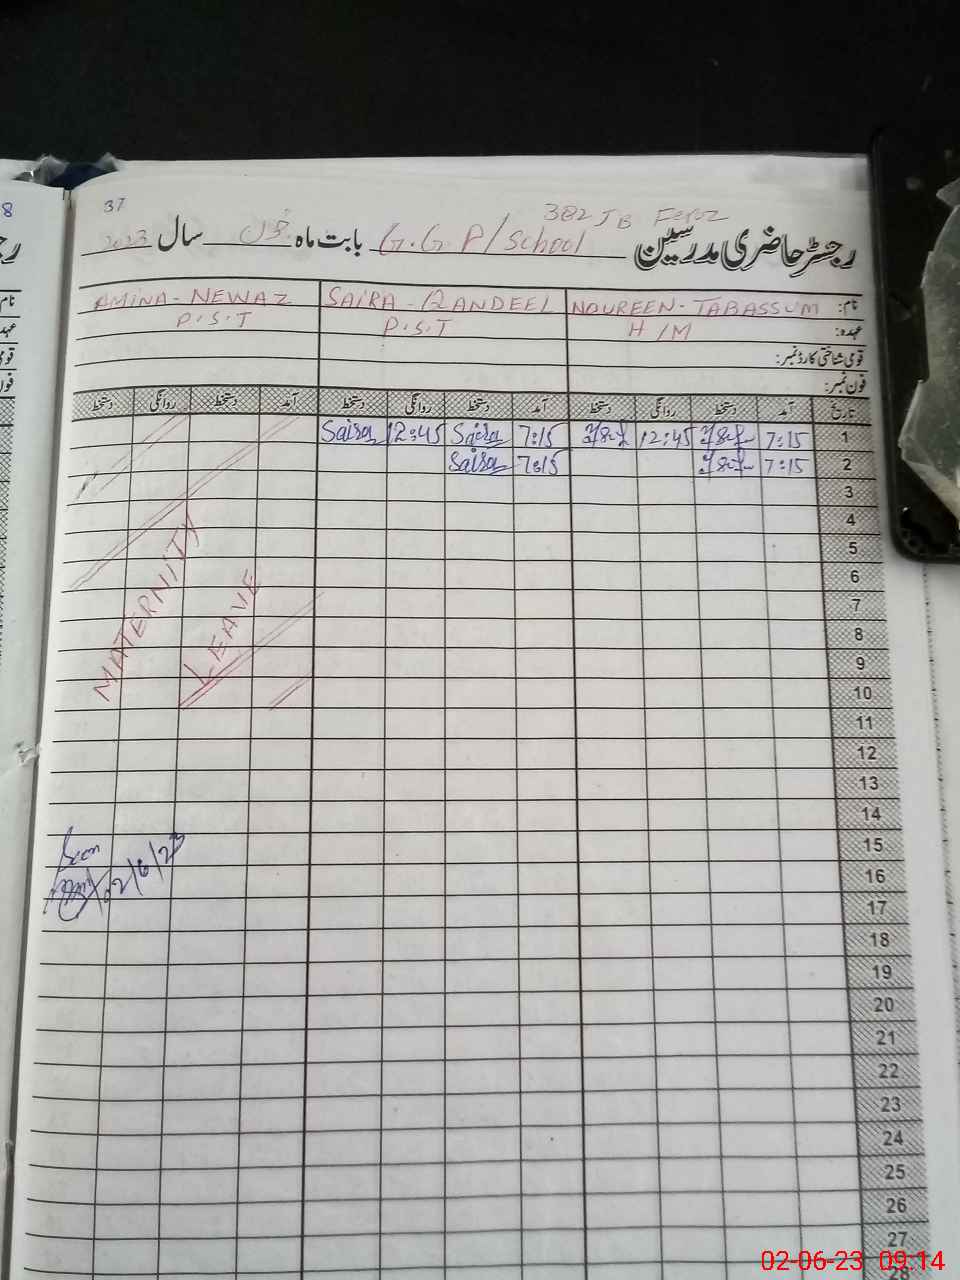 37
382 JB Feroz
رجسٹر حاضری مدرسین G.G P/School بابت ماہ جون سال 2023
نام: NOUREEN - TABASSUM SAIRA - QANDEEL AMINA - NEWAZ
عہدہ: H/M P.S.T P.S.T
قومی شناختی کارڈ نمبر:
فون نمبر:
تاریخ آمد دستخط روانگی دستخط آمد دستخط روانگی دستخط آمد دستخط روانگی دستخط
1 7:15 12:45 7:15 Saira 12:45 Saira
2 7:15 7:15 Saira
3
4
5
6
7
8
9
10
11
12
13
14
15
16
17
18
19
20
21
22
23
24
25
26
27
28
MATERNITY
LEAVE
Seen
02/6/23
8
رجـ
نام
عہد
قو
فوز
02-06-23 09:14